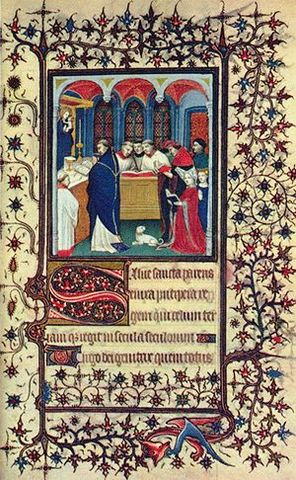 Salve sancta parens
enixa puerpera re
gem qui celum ter
ram qꝫ regit in secula seculorum
Virgo dei genitrix quem totus